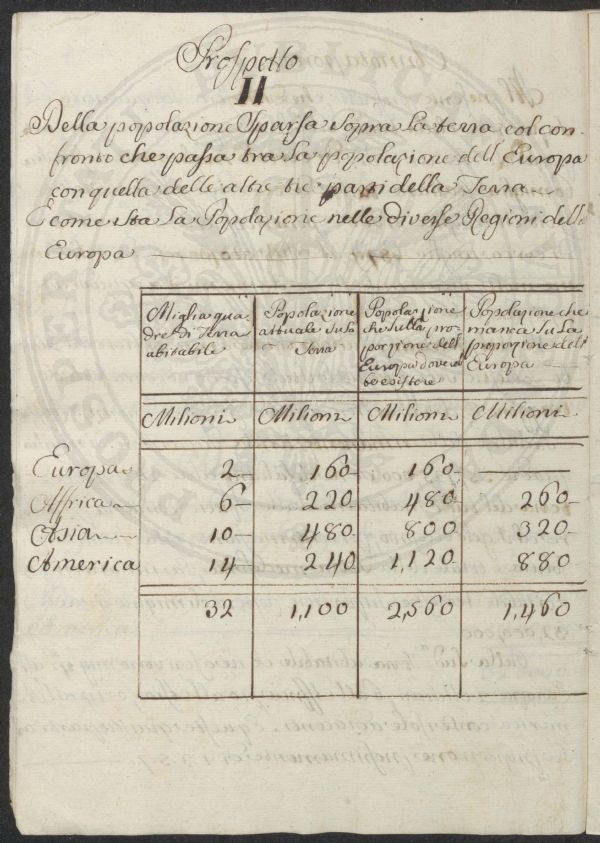 Prospetto
II
Della popolazione Sparsa sopra la terra col con-
fronto che passa tra la popolazione dell Europa
con quella delle altre tre parti della Terra
E come sta la Popolazione nelle diverse Regioni dell
Europa
Miglia qua-
dre di Terra
abitabile
Popolazione
attuale sula
terra
Popolazione
che sulla pro-
porzione dell
Europa dovreb
be esistere
Popolazione che
manca sula
proporzione dell
Europa
Milioni Milioni Milioni Milioni
Europa 2 160 160
Affrica 6 220 480 260
Asia 10 480 800 320
America 14 240 1,120 880
32 1,100 2,560 1,460